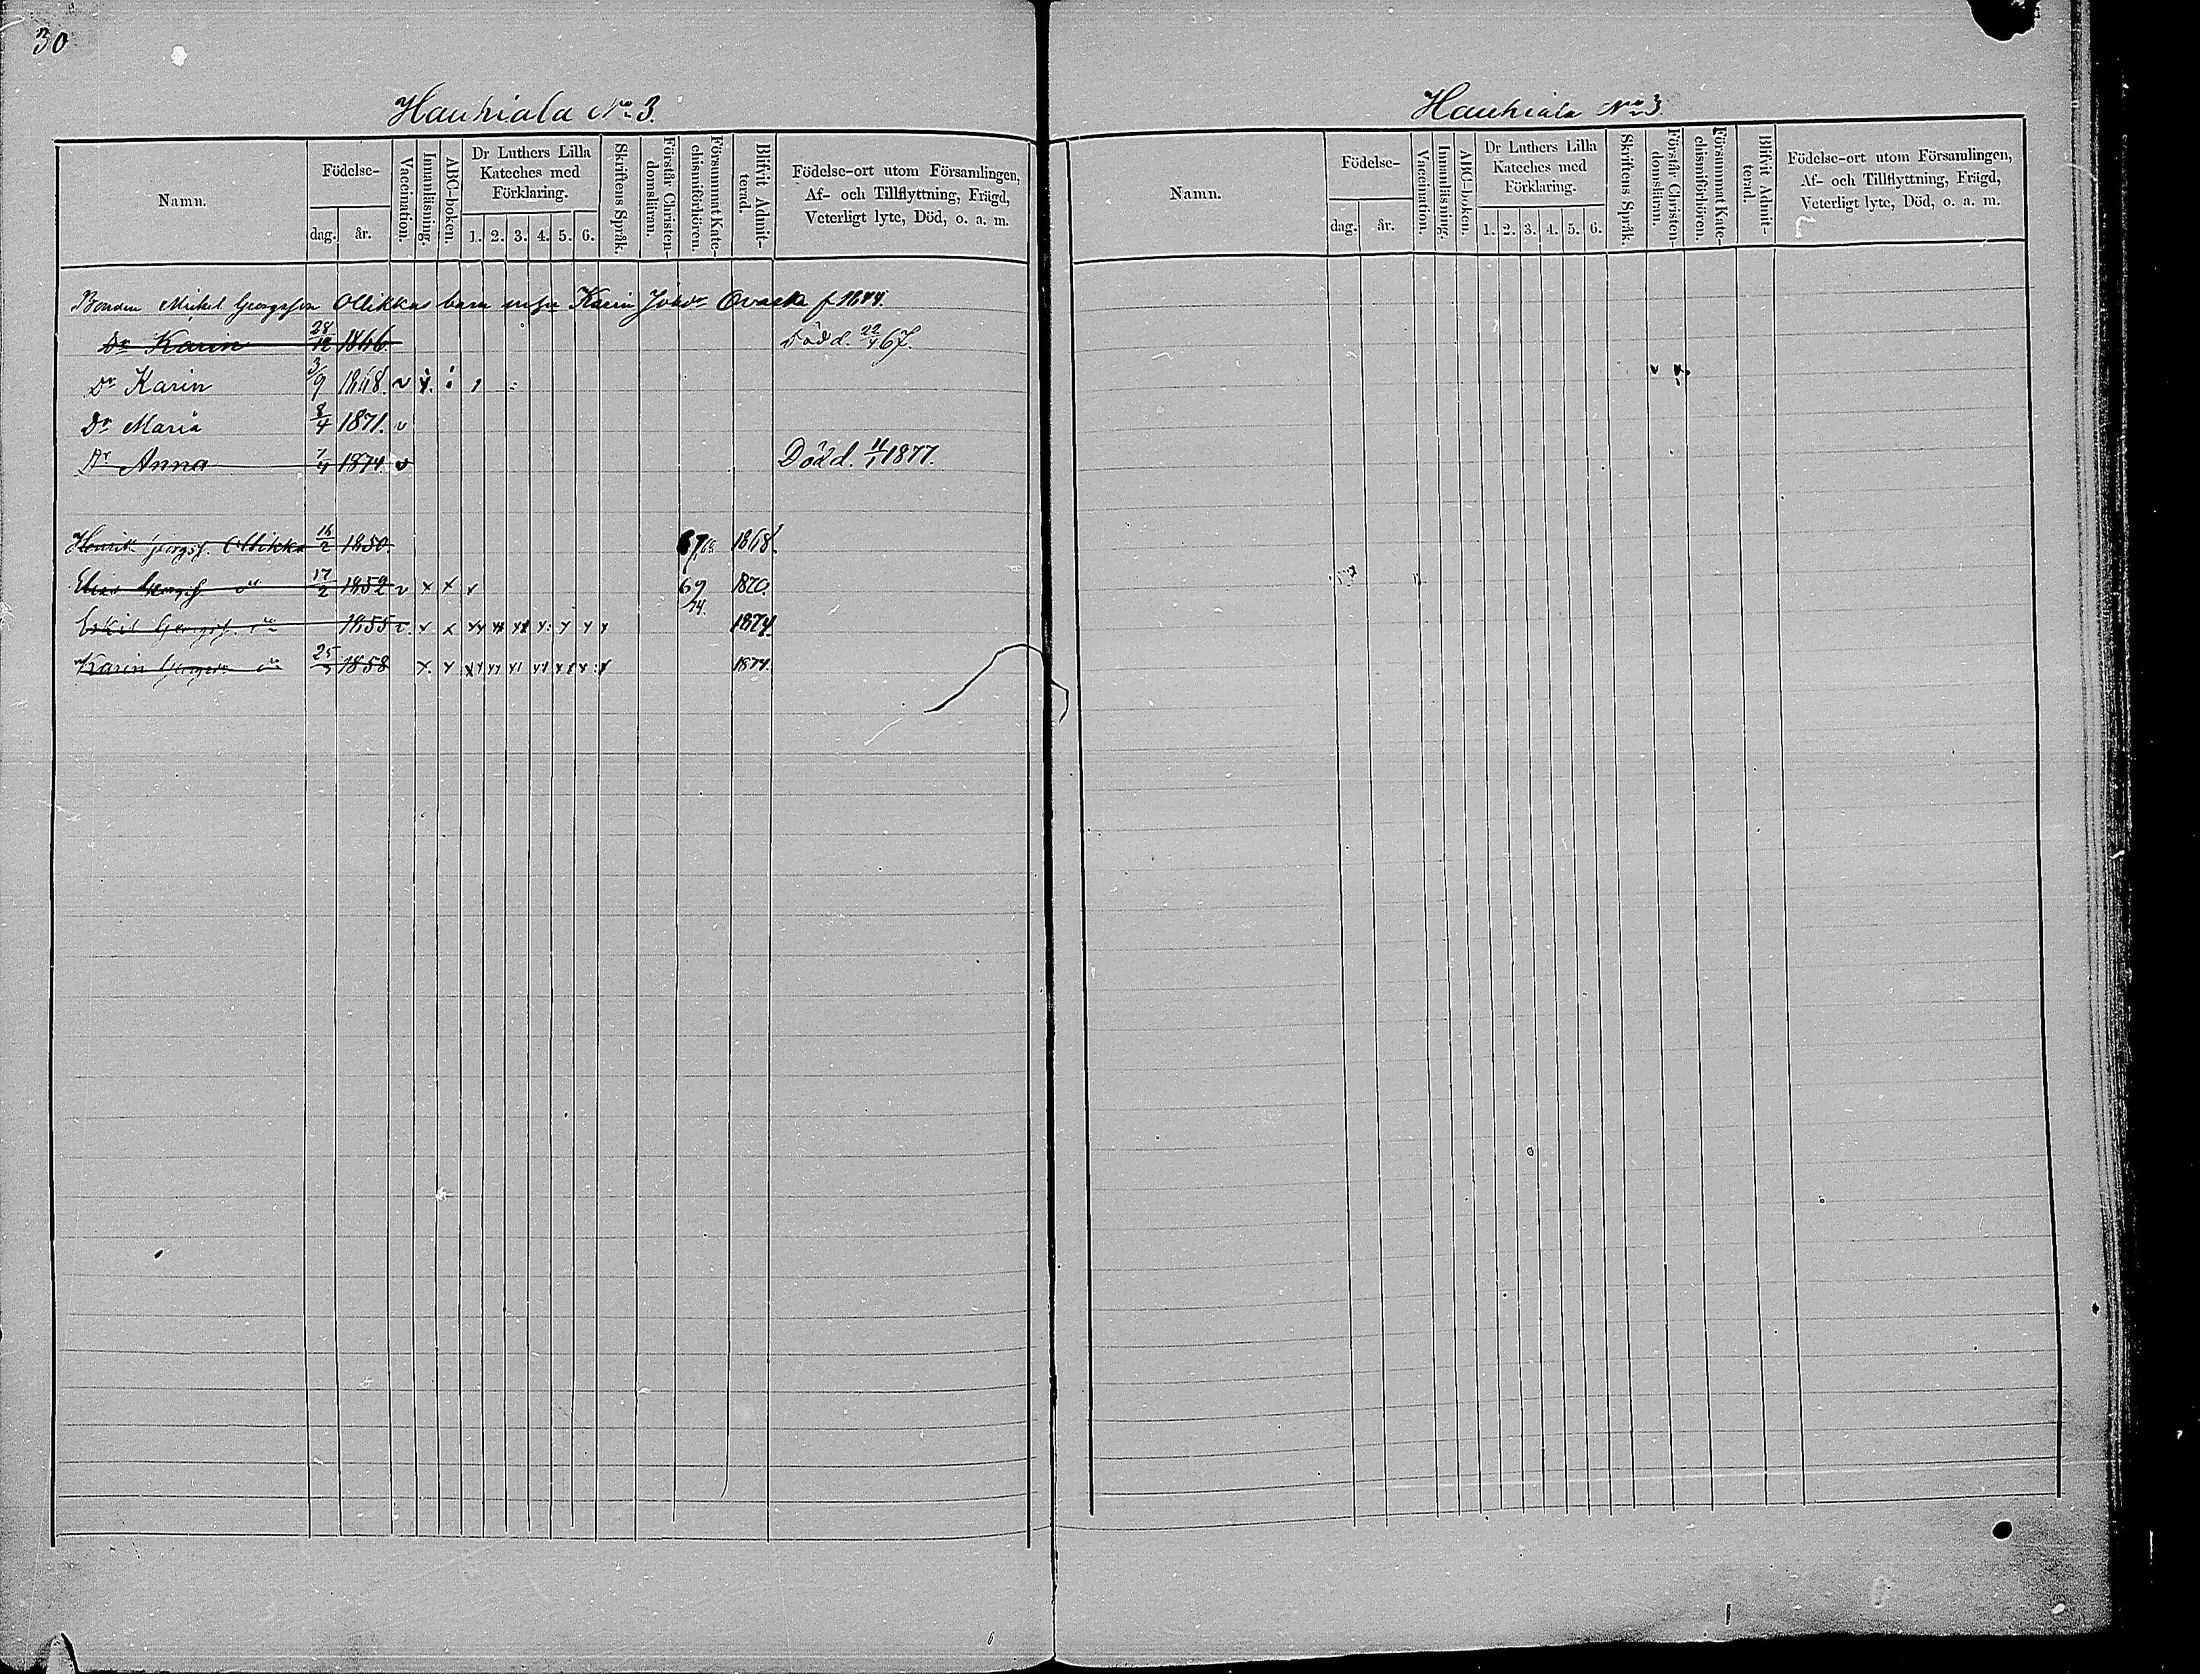 30
Hauhiala No 3.
Namn.
Födelse-
dag.
år.
Vaccination.
Innanläsning.
ABC-boken.
Dr Luthers Lilla
Kateches med
Förklaring.
1. 2. 3. 4. 5. 6.
Skriftens Språk.
Förstår Christen-
domsläran.
Försummat Kate-
chismiförhören.
Blifvit Admit-
terad.
Födelse-ort utom Församlingen,
Af- och Tillflyttning, Frägd,
Veterligt lyte, Död, o. a. m.
Bonden Michel Georgsson Ollikkas barn Karin f. 1844.
Dr Karin 28/12 1866. Död d. 22/4 67.
Dr Karin 3/9 1868. v
Dr Maria 8/4 1871. v
Dr Anna 7/4 1874 v Död d. 11/1 1877.
Henrik Georgss. Ollikka 16/2 1850. 1868.
Elias Georgss. do 17/2 1852 v x x x 69 1870.
74.
Eskil Georgss. do 1855 v. 1874.
Karin do 1858 1874.
Hauhiala No 3
Namn.
Födelse-
dag.
år.
Vaccination.
Innanläsning.
ABC-boken.
Dr Luthers Lilla
Kateches med
Förklaring.
1. 2. 3. 4. 5. 6.
Skriftens Språk.
Förstår Christen-
domsläran.
Försummat Kate-
chismiförhören.
Blifvit Admit-
terad.
Födelse-ort utom Församlingen,
Af- och Tillflyttning, Frägd,
Veterligt lyte, Död, o. a. m.